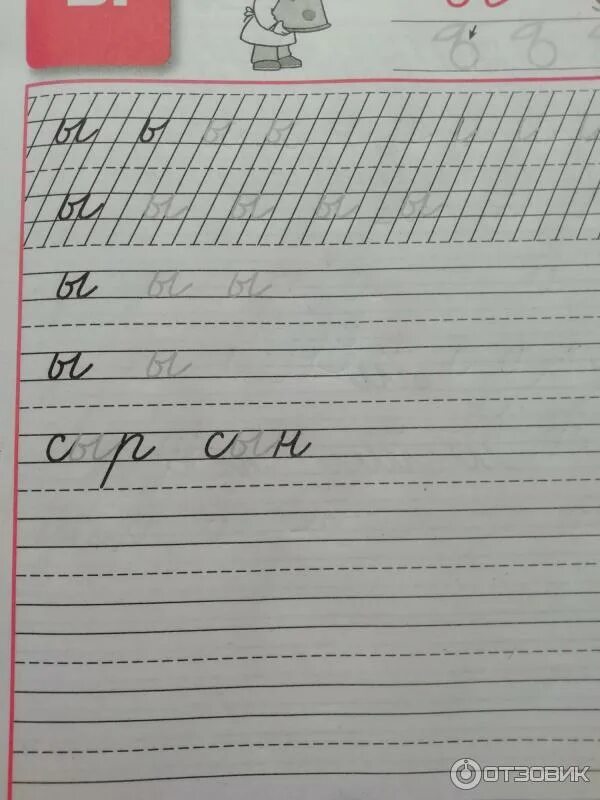 Ы
ы ь ь ь
ы ы ы ы ы
ы ы ы
ы ы
сыр сын
ОТЗОВИК